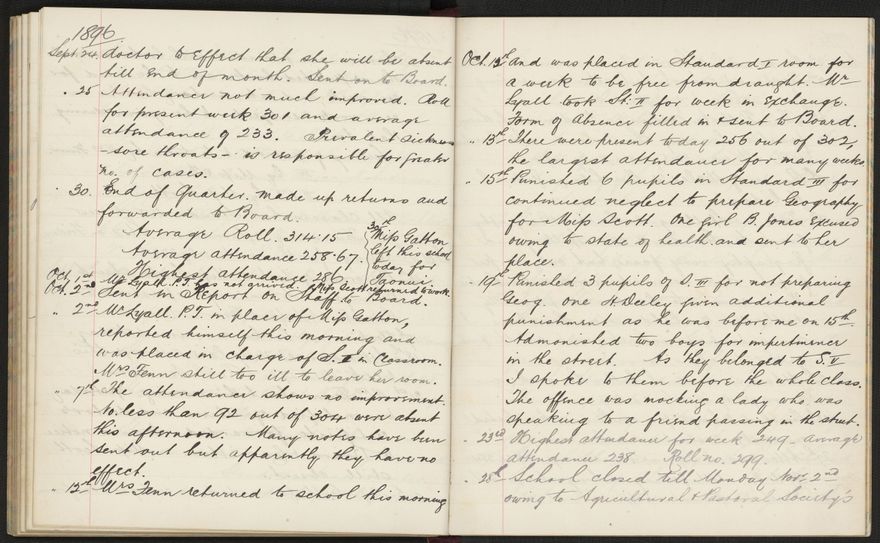 1896.
Sept. 24. doctor to effect that she will be absent
till end of month. Sent on to Board.
" 25 Attendance not much improved. Roll
for present week 301 and average
attendance of 233. Prevalent sickness
- sore throats - is responsible for greater
no. of cases.
" 30. End of Quarter. made up returns and
forwarded to Board.
Average Roll. 314.15
Average attendance 258.67.
Highest attendance 286
30th Miss Gatton
left this school
today for
Taonui.
Oct. 1st Mr Lyall. P.T. has not arrived. Miss Scott returned to work.
Oct. 2nd Sent in Report on Staff to Board.
" 2nd Mr Lyall. P.T. in place of Miss Gatton,
reported himself this morning and
was placed in charge of S. II in Classroom.
Mrs Fenn still too ill to leave her room.
" 7th The attendance shows no improvement.
No less than 92 out of 304 were absent
this afternoon. Many notes have been
sent out but apparently they have no
effect.
" 12th Mrs Fenn returned to school this morning
Oct. 12th and was placed in Standard I room for
a week to be free from draught. Mr
Lyall took St. II for week in exchange.
Form of Absence filled in & sent to Board.
" 13th There were present today 256 out of 302,
the largest attendance for many weeks.
" 15th Punished 6 pupils in Standard III for
continued neglect to prepare Geography
for Miss Scott. One girl B. Jones excused
owing to state of health and sent to her
place.
" 19th Punished 3 pupils of S. III for not preparing
Geog. one H Deeley given additional
punishment as he was before me on 15th.
Admonished two boys for impertinence
in the street. As they belonged to S. V
I spoke to them before the whole class.
The offence was mocking a lady who was
speaking to a friend passing in the street.
" 23rd Highest attendance for week 249 - average
attendance 238. Roll no. 299.
" 28th School closed till Monday Nov. 2nd
owing to Agricultural & Pastoral Society's